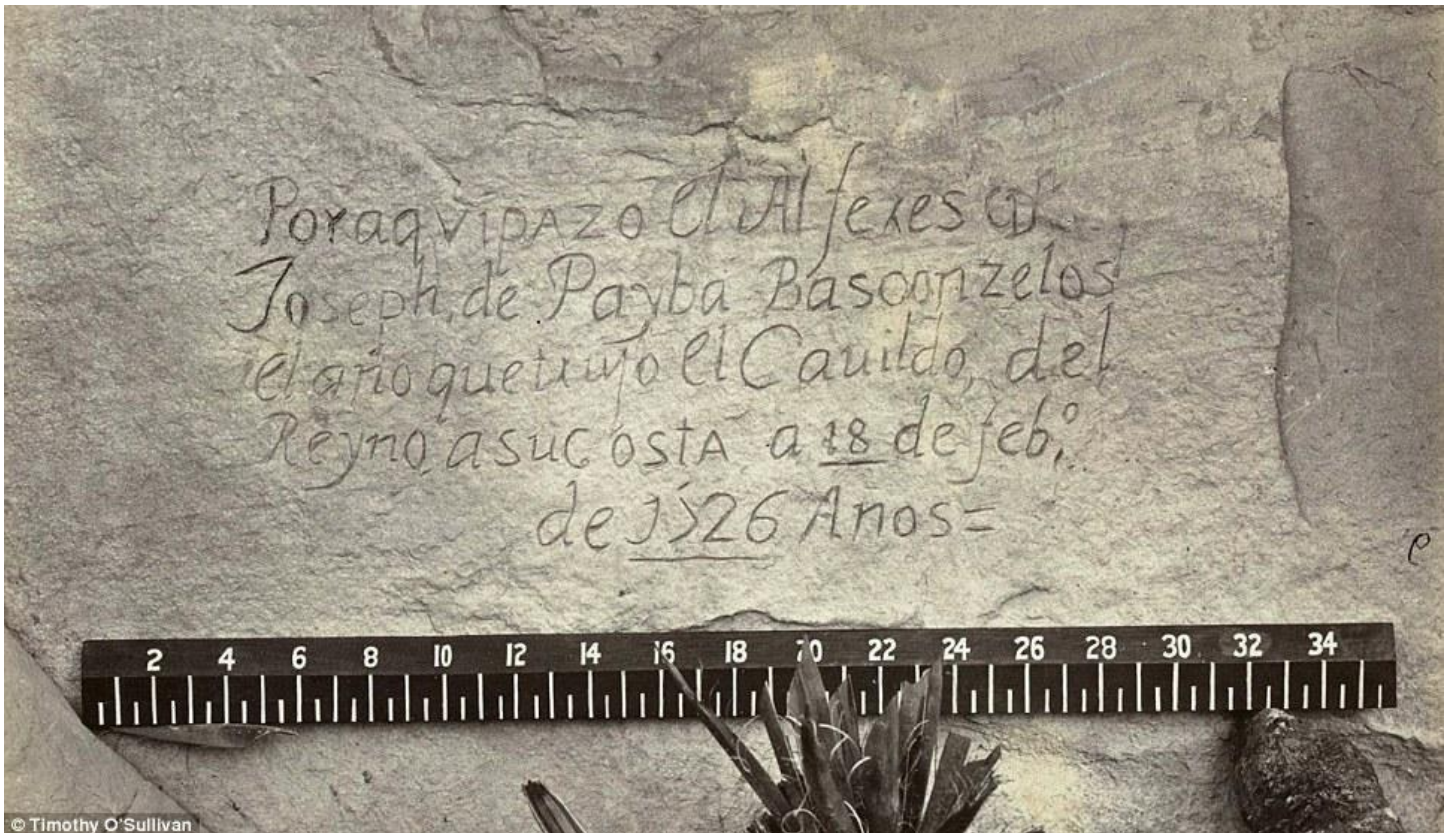 Por aqvi pazo el Alferes Dn
Joseph de Payba Basconzelos
el año que trujo el Cauildo del
Reyno a su costa a 18 de febo
de 1726 Años=
2 4 6 8 10 12 14 16 18 20 22 24 26 28 30 32 34
© Timothy O'Sullivan